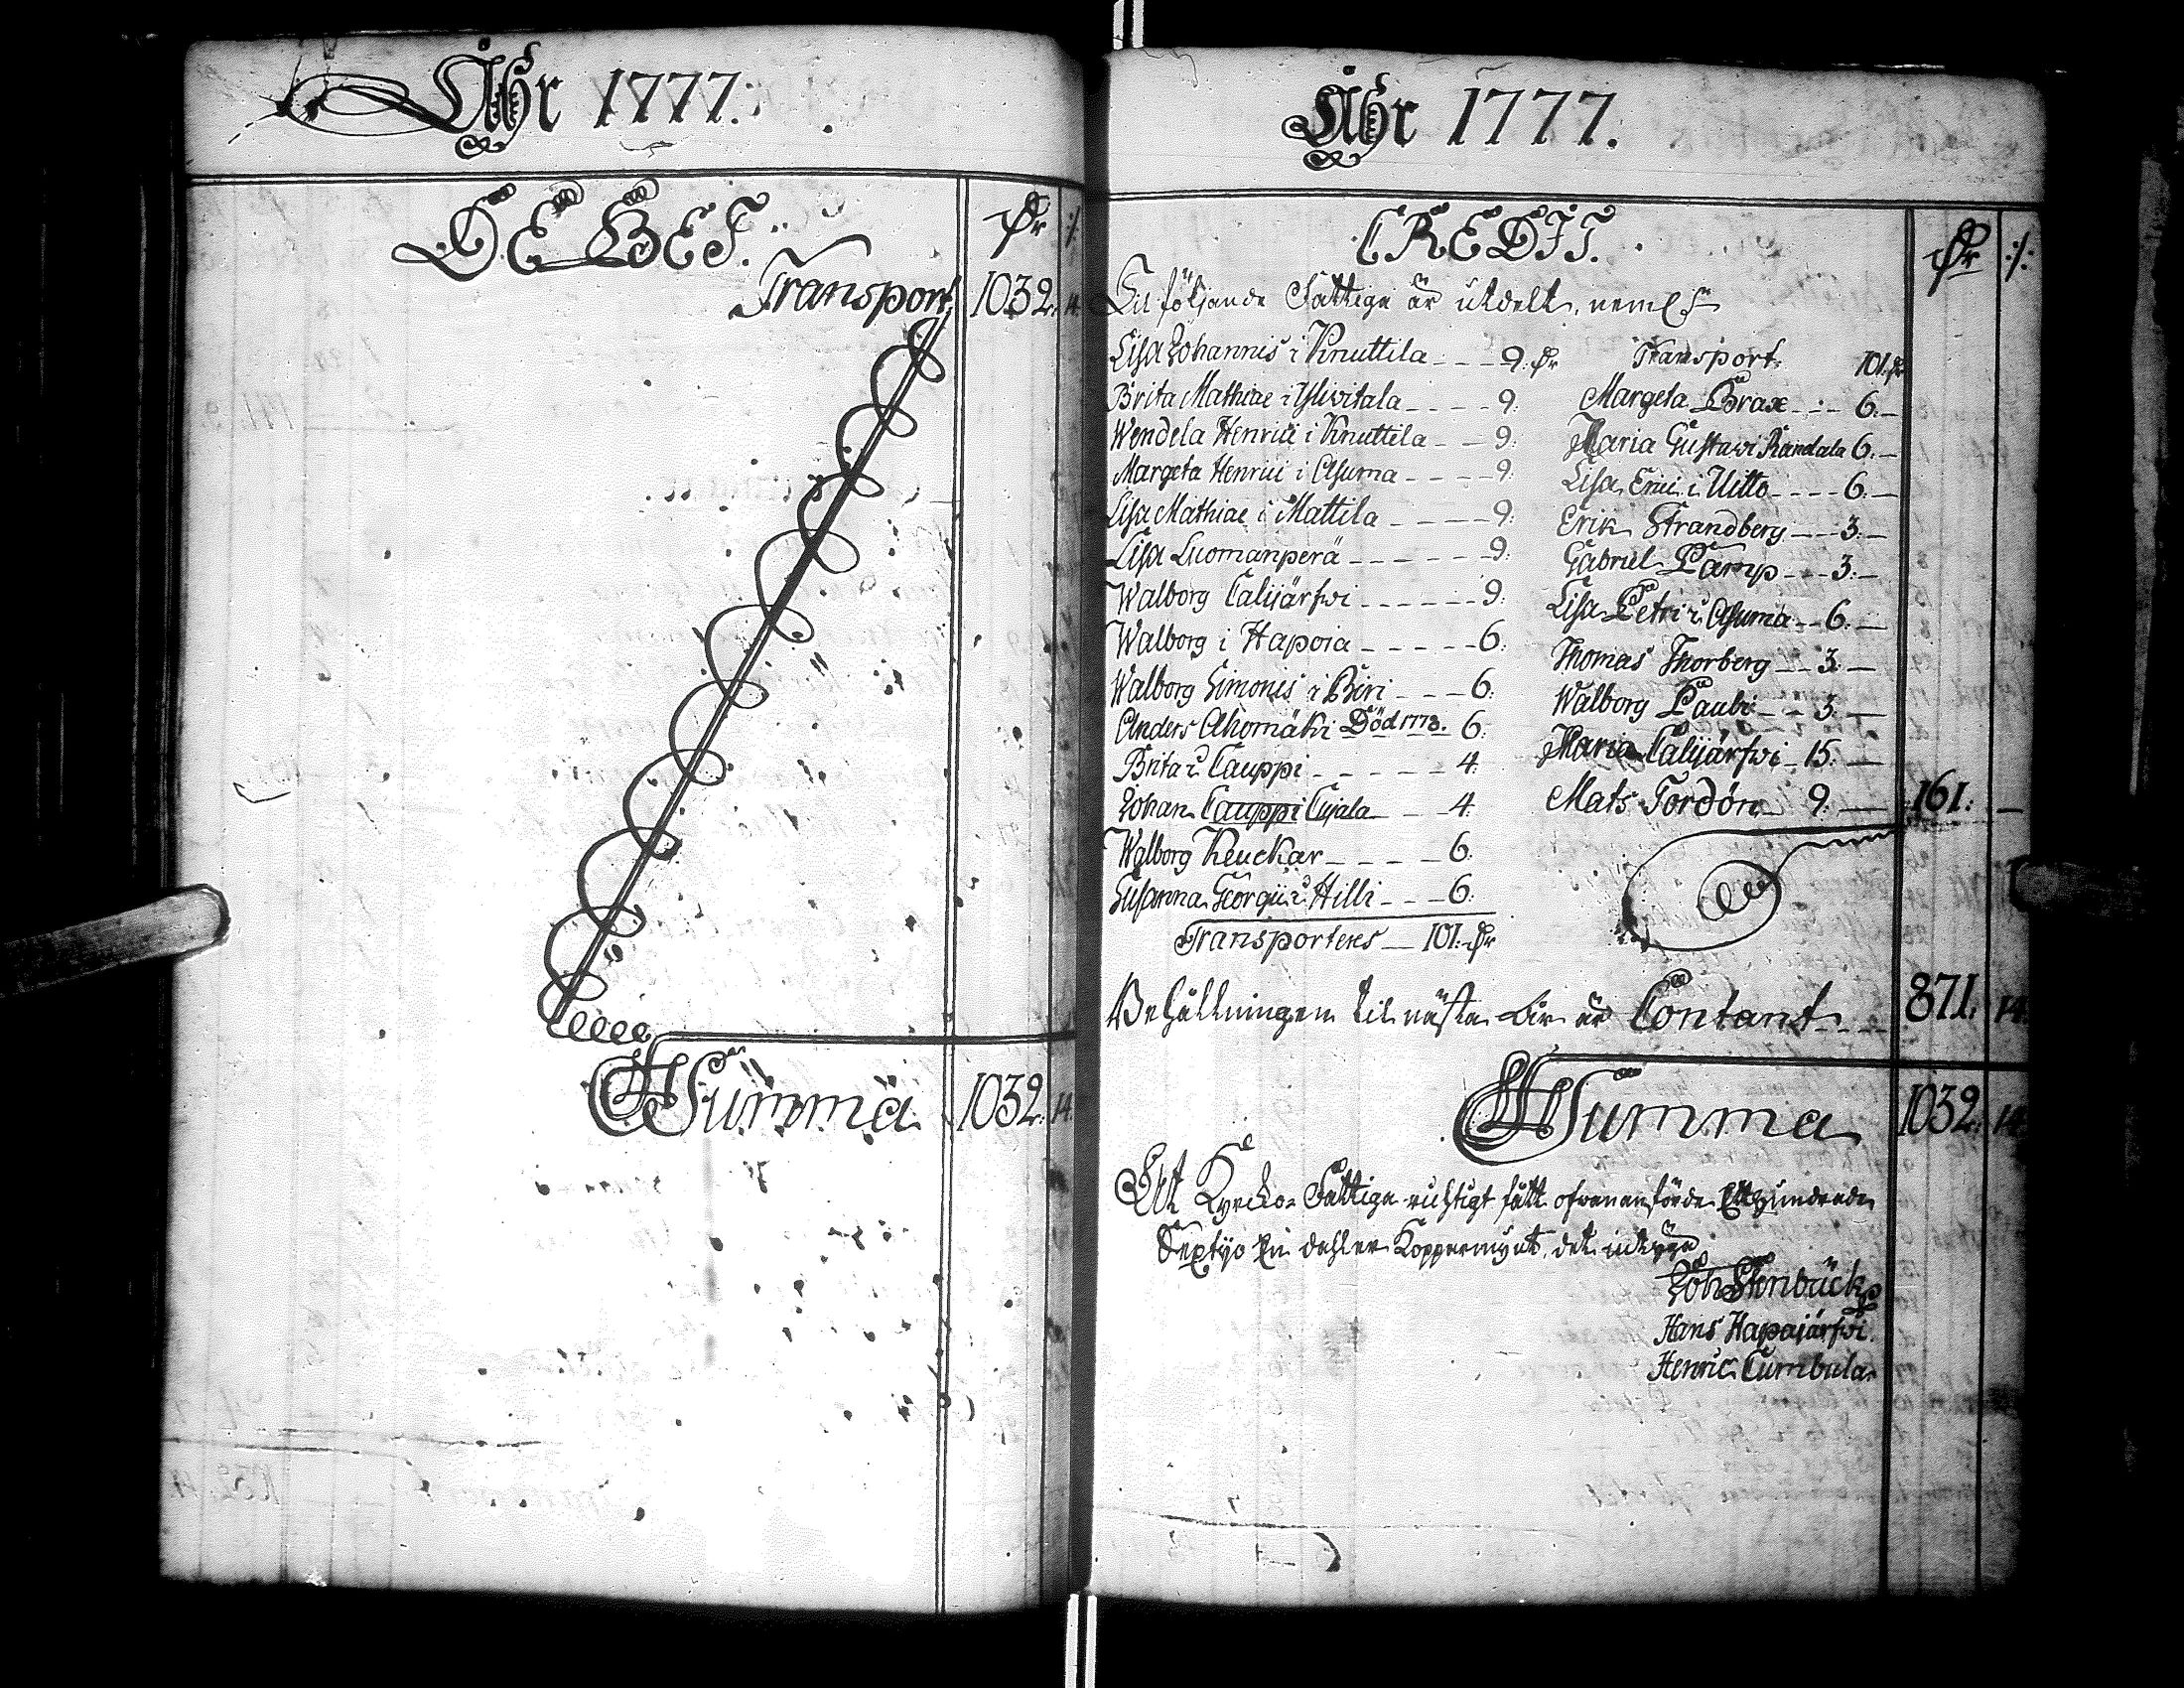 Åhr 1777.
DEBET.
Transport 1032. 14.
Summa 1032. 14.
Åhr 1777.
CREDIT.
Til följande Fattige är utdelt, neml:
Lisa Johannis i Knuttila 9:
Brita Mathiae i Yliwitala 9:
Wendela Henrici i Knuttila 9:
Margeta Henrici i Asuma 9:
Lisa Mathiae i Mattila 9:
Lisa Luomanperä 9:
Walborg Calijärfwi 9:
Walborg i Hapoia 6:
Walborg Simonis i Biri 6:
Anders Ahomäki Död 1773. 6:
Brita i Cauppi 4:
Johan Cauppi Cujala 4:
Walborg Keuckar 6:
Susanna Georgii i Hilli 6:
Transporteres 101:
Transport: 101:
Margeta Brax 6:
Maria Gustawi Randala 6:
Lisa Erici i Uitto 6:
Erik Strandberg 3:
Gabriel Lamp 3:
Lisa Petri i Asuma 6:
Thomas Thorberg 3:
Walborg Caubi 3:
Maria Calijärfwi 15:
Mats Tordön 9: 161:
Behållningen til nästa år är Contant 871. 14.
Summa 1032. 14.
At Kyrcko-Fattige richtigt fått ofvananförde Etthundrade
Sextijo En dahler Koppermynt, det intyga
Joh Stenbäck
Hans Hapajärfwi.
Henric Cumbula